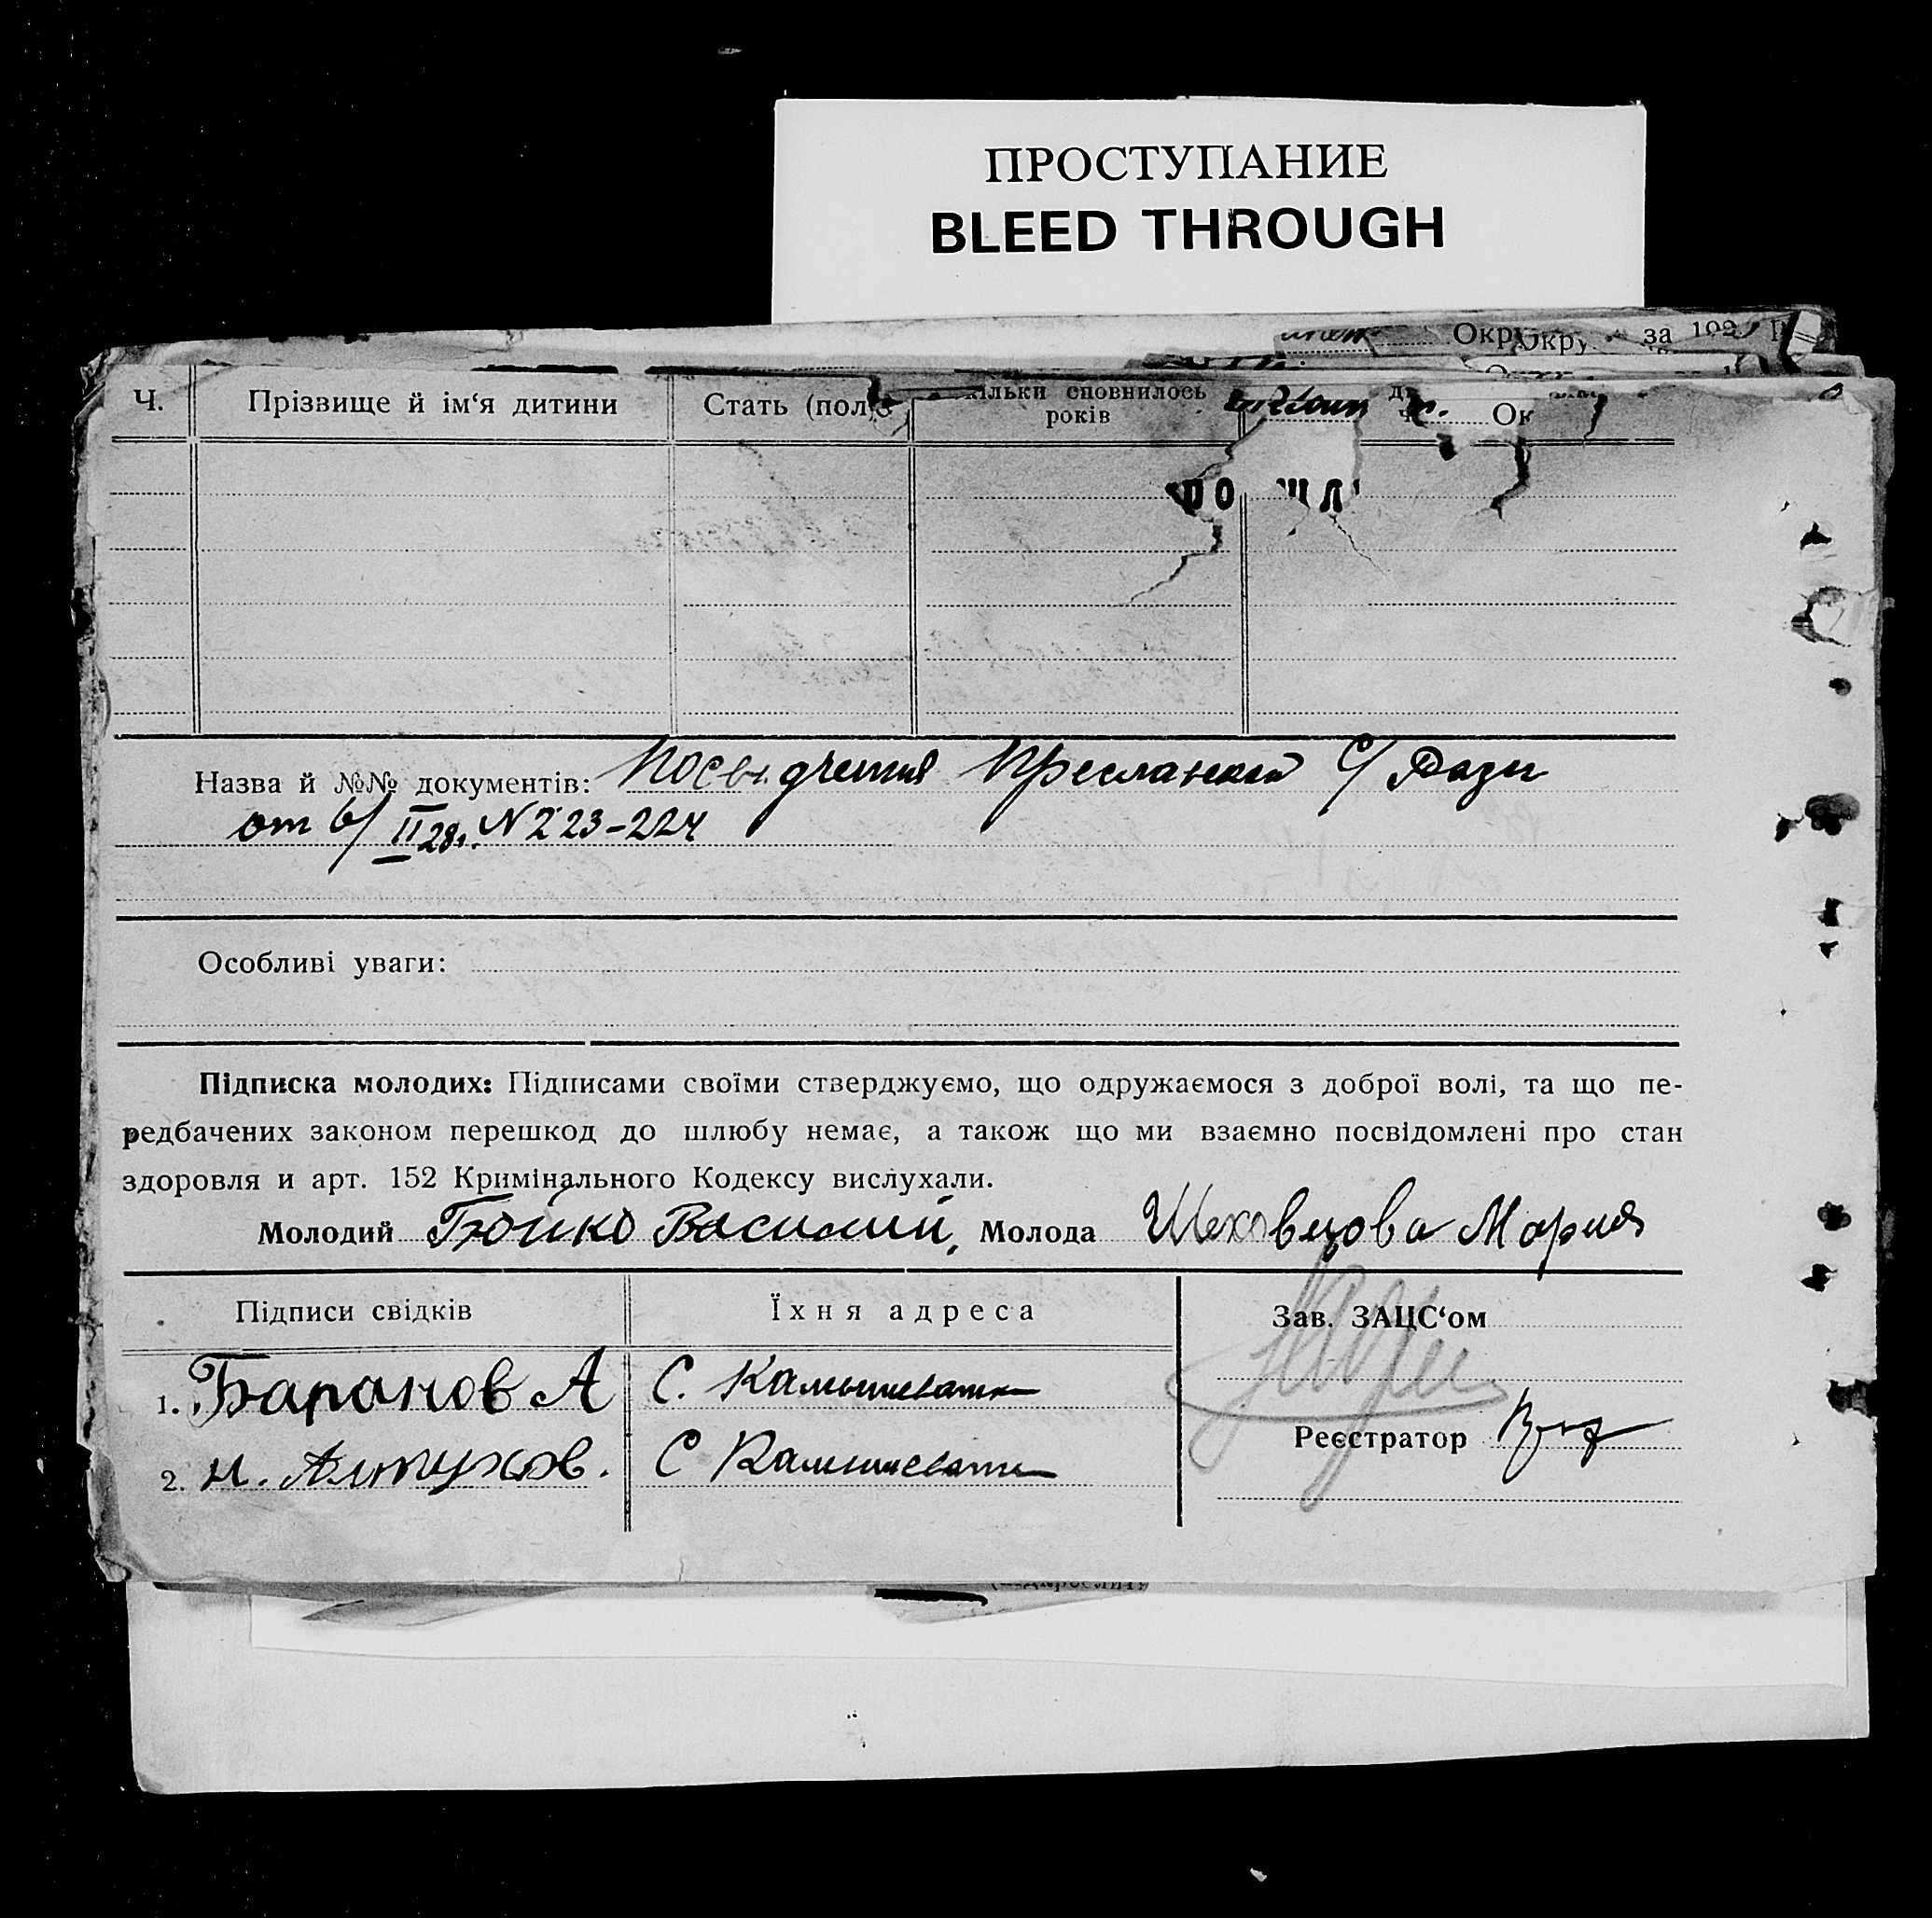 ПРОСТУПАНИЕ
BLEED THROUGH
Окру Окру за 192
Ч. Прізвище й ім‘я дитини Стать (пол) ільки сповнилось років Ок
по шл
Назва й №№ документів: Посвідчення Преславской С/Ради
от 6/II 28г. N 223-224
Особливі уваги:
Підписка молодих: Підписами своїми стверджуємо, що одружаємося з доброї волі, та що пе-
редбачених законом перешкод до шлюбу немає, а також що ми взаємно посвідомлені про стан
здоровля и арт. 152 Кримінального Кодексу вислухали.
Молодий Бойко Василий, Молода Шеховцова Мария
Підписи свідків Їхня адреса Зав. ЗАЦС‘ом
1. Баранов А С. Камышеватка
Реєстратор
2. и. Алтухов. С Камышеватка